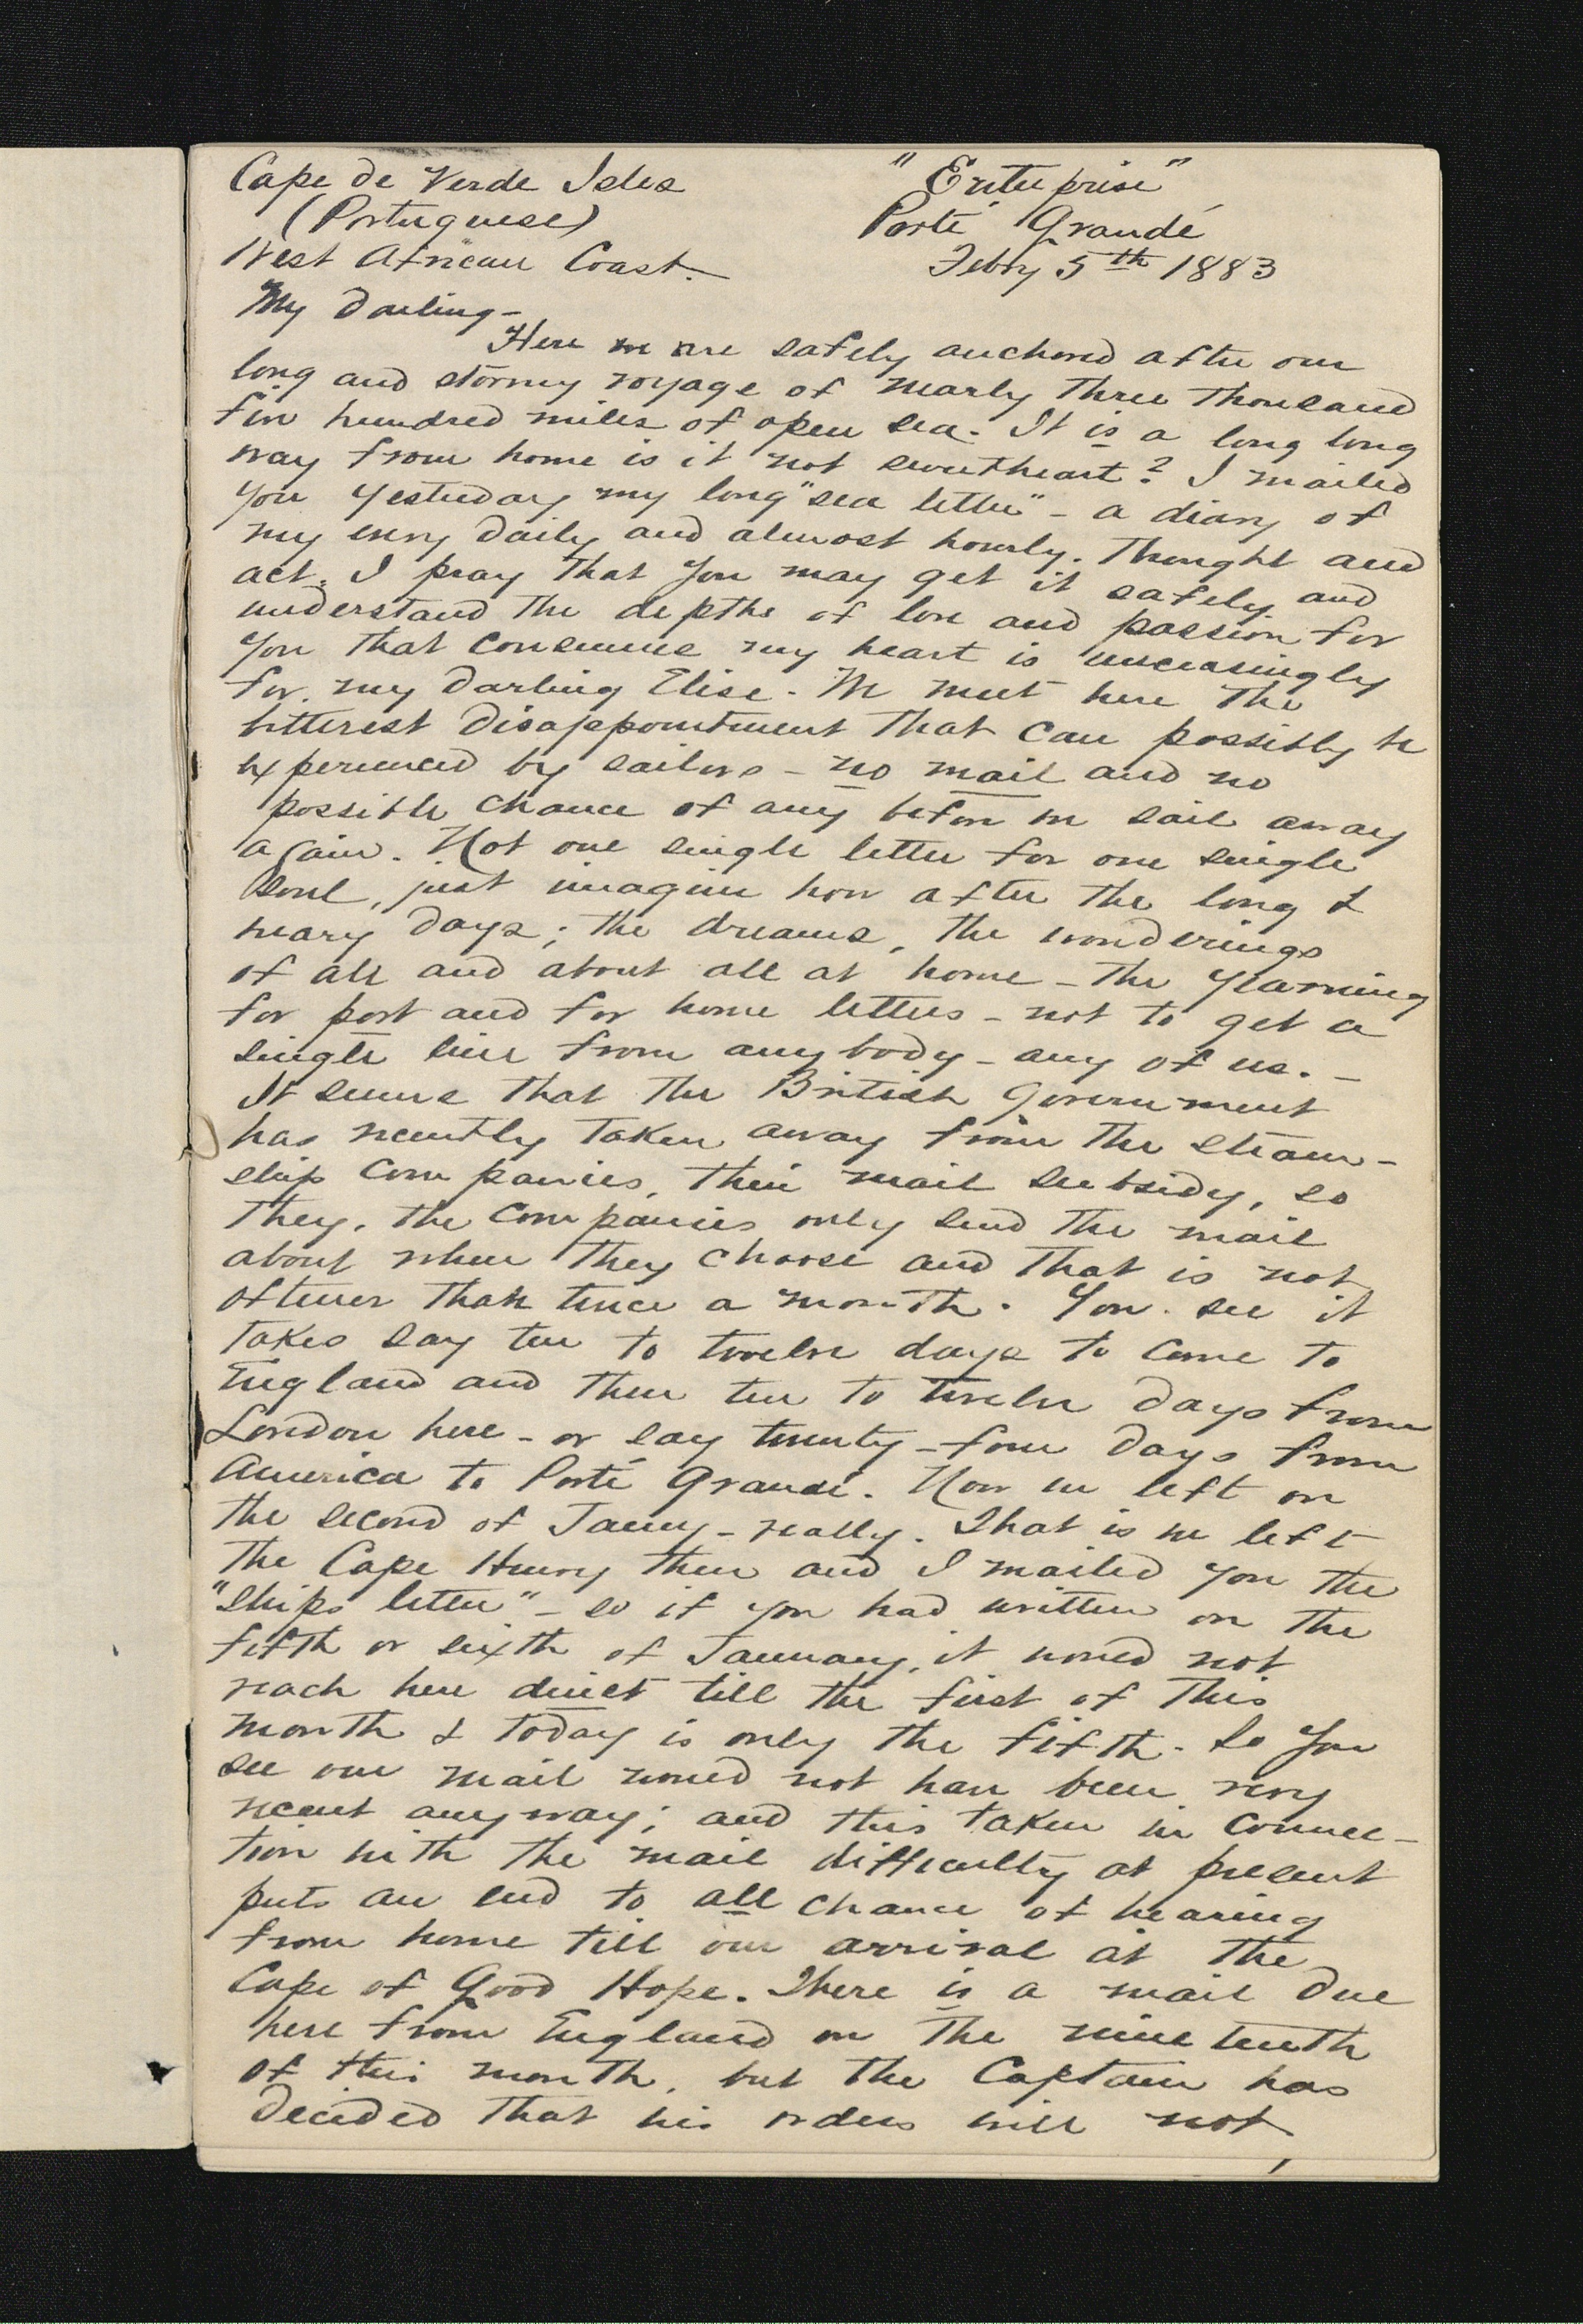 Cape de Verde Isles
(Portuguese)
West African Coast.
"Enterprise"
Porté Grandé
Febry 5th 1883
My Darling -
Here we are safely anchored after our
long and stormy voyage of nearly three thousand
five hundred miles of open sea. It is a long long
way from home is it not sweetheart? I mailed
you yesterday my long "sea letter" - a diary of
my every daily and almost hourly thought and
act. I pray that you may get it safely and
understand the depths of love and passion for
you that consumes my heart is unceasingly
for my Darling Elise. We meet here the
bitterest disappointment that can possibly be
experienced by sailors - no mail and no
possible chance of any before we sail away
again. Not one single letter for one single
soul, just imagine how after the long &
weary days; the dreams, the wonderings
of all and about all at home - the yearning
for port and for home letters - not to get a
single line from anybody - any of us. -
It seems that the British Government
has recently taken away from the steam-
ship companies, their mail subsidy, so
they, the companies only send the mail
about when they choose and that is not
oftener than twice a month. You see it
takes say ten to twelve days to come to
England and then ten to twelve days from
London here - or say twenty-four days from
America to Porté Grandé. Now we left on
the second of Janny - really. That is we left
the Cape Henry then and I mailed you the
"ships letter" - so if you had written on the
fifth or sixth of January, it would not
reach here direct till the first of this
month & today is only the fifth. So you
see our mail would not have been very
recent anyway; and this taken in connec-
tion with the mail difficulty at present
puts an end to all chance of hearing
from home till our arrival at the
Cape of Good Hope. There is a mail due
here from England on the nineteenth
of this month, but the Captain has
decided that his orders will not